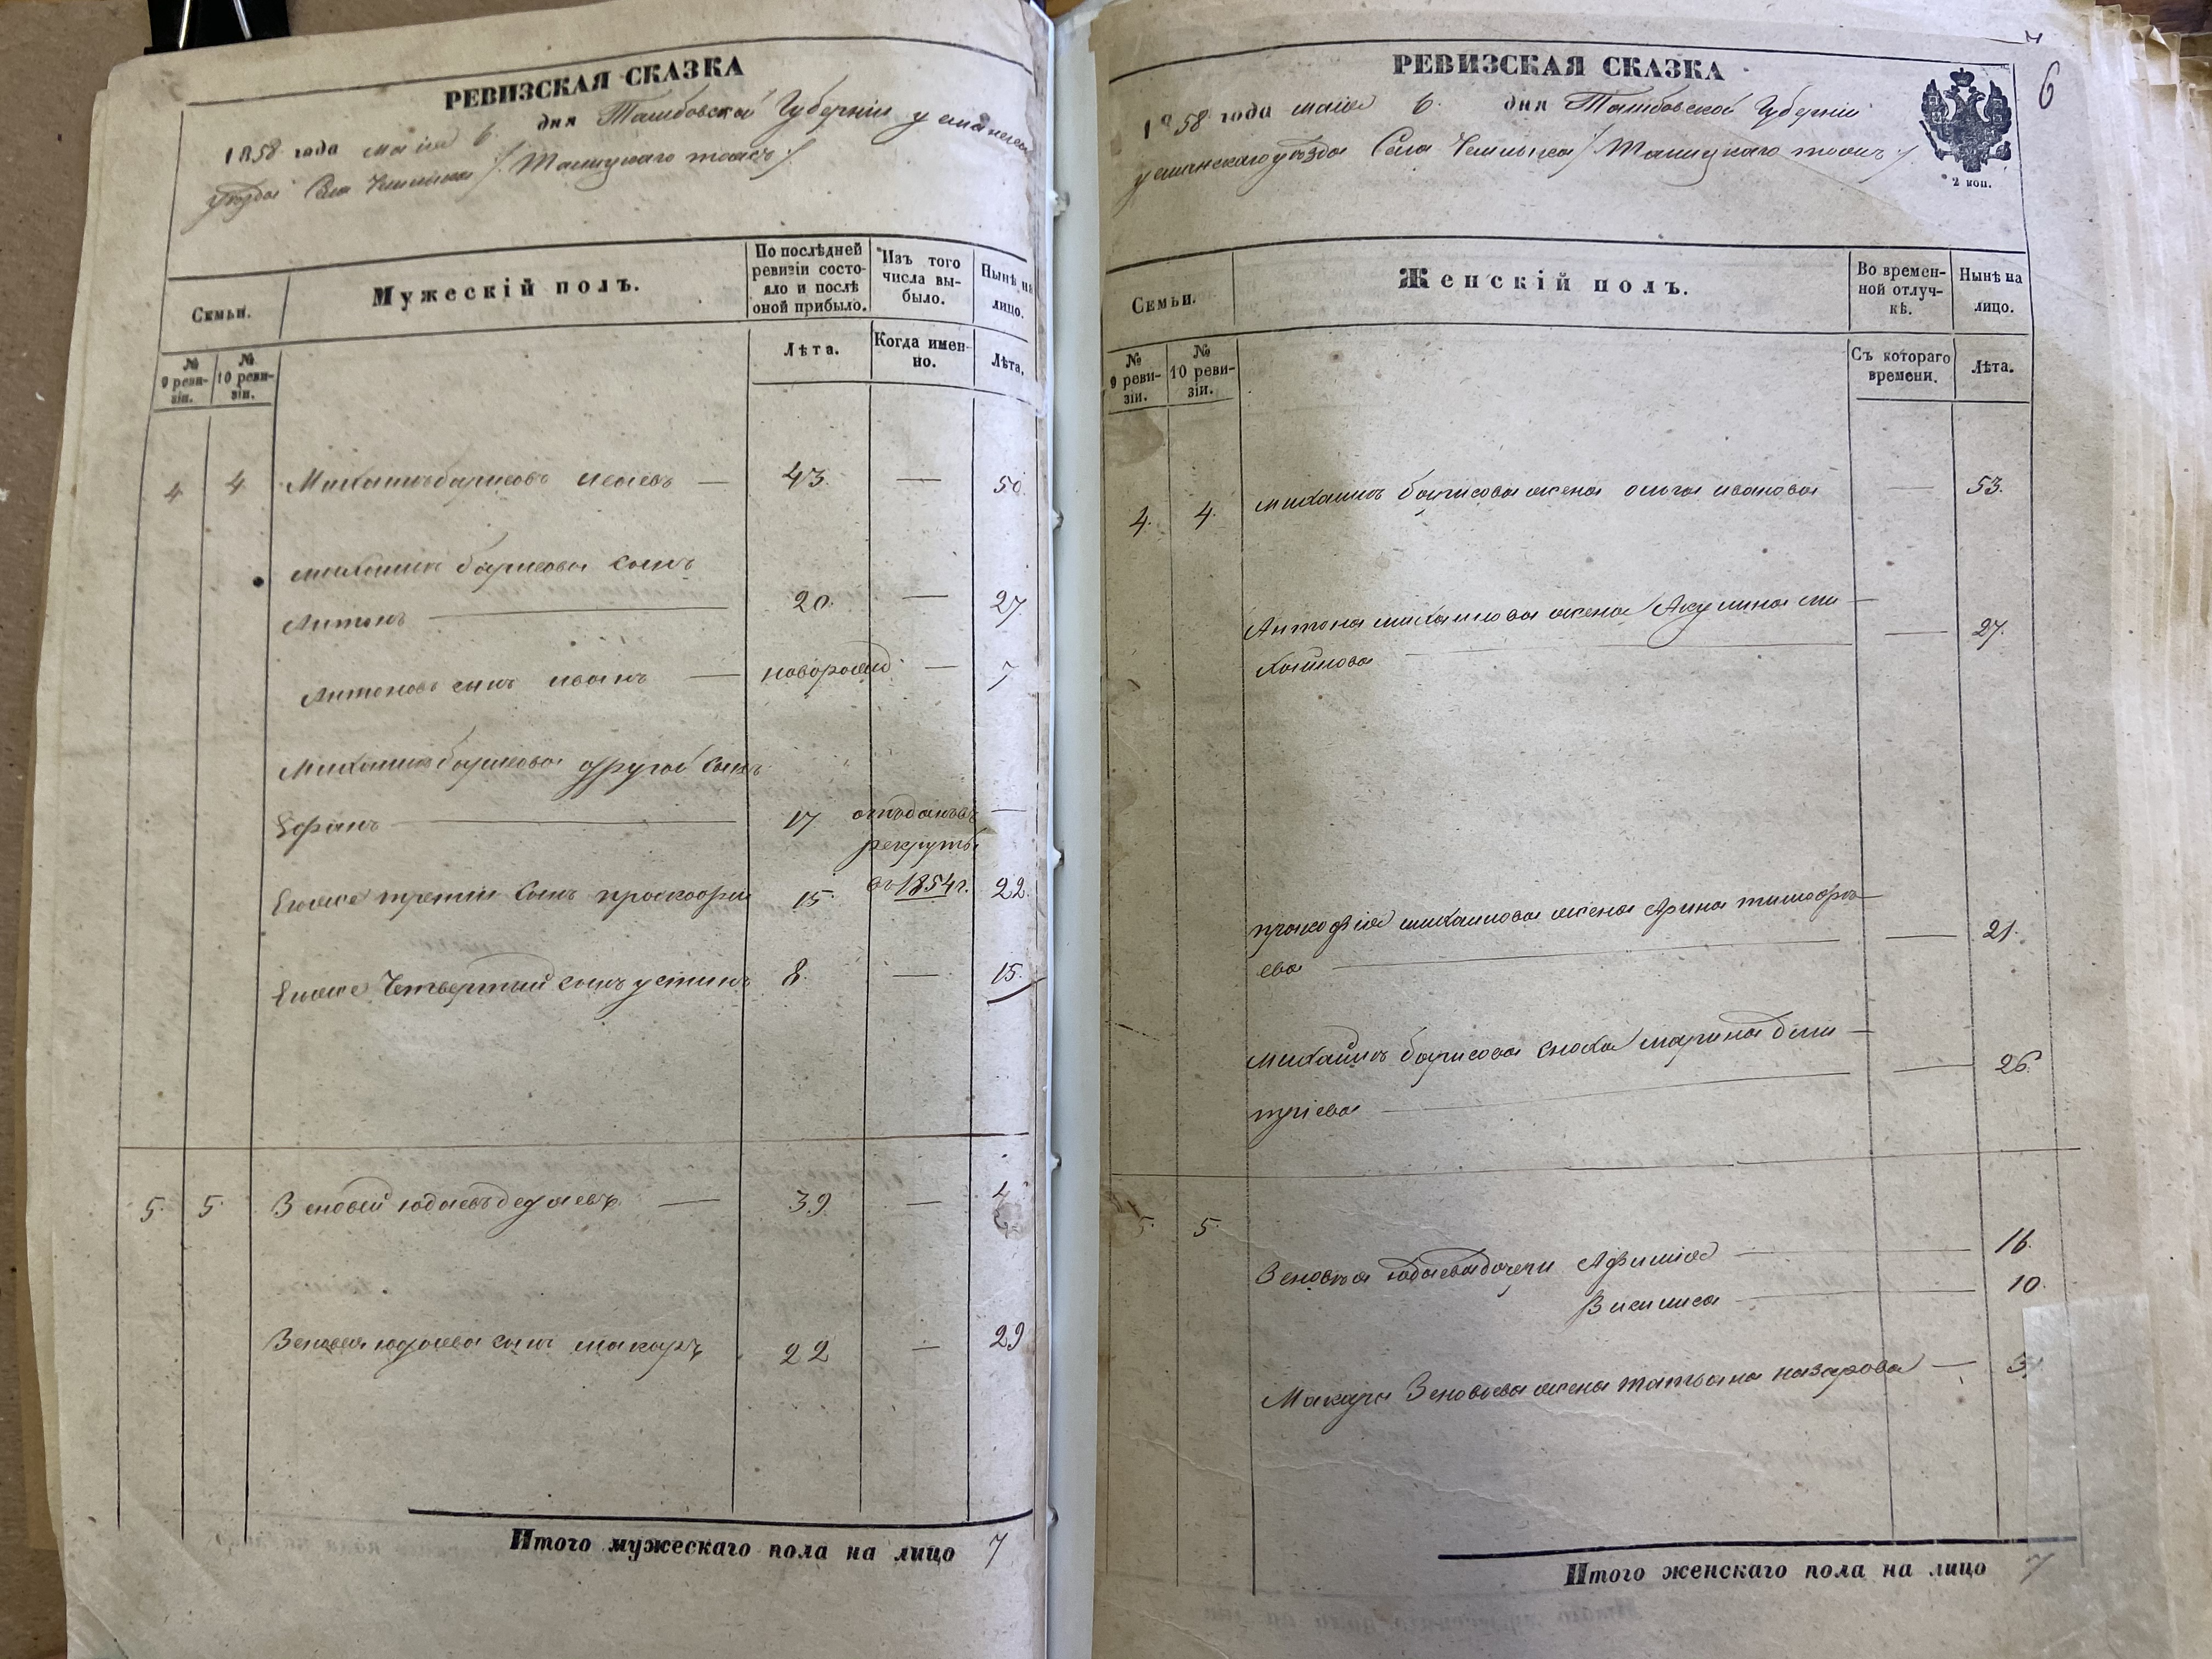 РЕВИЗСКАЯ СКАЗКА
1858 года маія 6. дня Тамбовской Губерніи усманскаго
уѣзда Села Чемлыка /: Талицкаго тожъ :/
Семьи.
Мужескій полъ.
По послѣдней ревизіи состояло и послѣ оной прибыло.
Изъ того числа выбыло.
Нынѣ на лицо.
№ 9 ревизіи.
№ 10 ревизіи.
Лѣта.
Когда именно.
Лѣта.
4 4. Михаилъ барисовъ — 43. — 50.
михаила барисова сынъ
Антонъ — 20. — 27.
Антоновъ сынъ иванъ — новорожд — 7
Михаила барисова другой сынъ
Ефимъ — 17 отъданъ въ —
рекруты
Егоже третии сынъ прокофий 15. въ 1854 г. 22.
Егоже Четвертый сынъ устинъ 8. — 15.
5. 5. Зеновей юдаевъ — 39. — 4
Зеновея юдаева сынъ макаръ 22 — 29
Итого мужескаго пола на лицо 7
РЕВИЗСКАЯ СКАЗКА
6
1858 года маія 6. дня Тамбовской Губерніи
усманскаго уѣзда Села Чемлыка /: Талицкаго тожъ :/
2 коп.
Семьи.
Женскій полъ.
Во временной отлучкѣ.
Нынѣ на лицо.
№ 9 ревизіи.
№ 10 ревизіи.
Съ котораго времени.
Лѣта.
4. 4. михаилъ барисова жена ольга иванова — 53.
Антона михаилова жена Акулина ми-
хайлова — 27.
прокофія михаилова жена Арина тимофѣ-
ева — 21.
михайлъ барисова сноха марина дми-
тріева — 26.
5. 5. Зеновъя юдаева дочери Афимія — 16.
Василиса — 10.
Макара Зеновьева жена татьяна назарова —
Итого женскаго пола на лицо 7